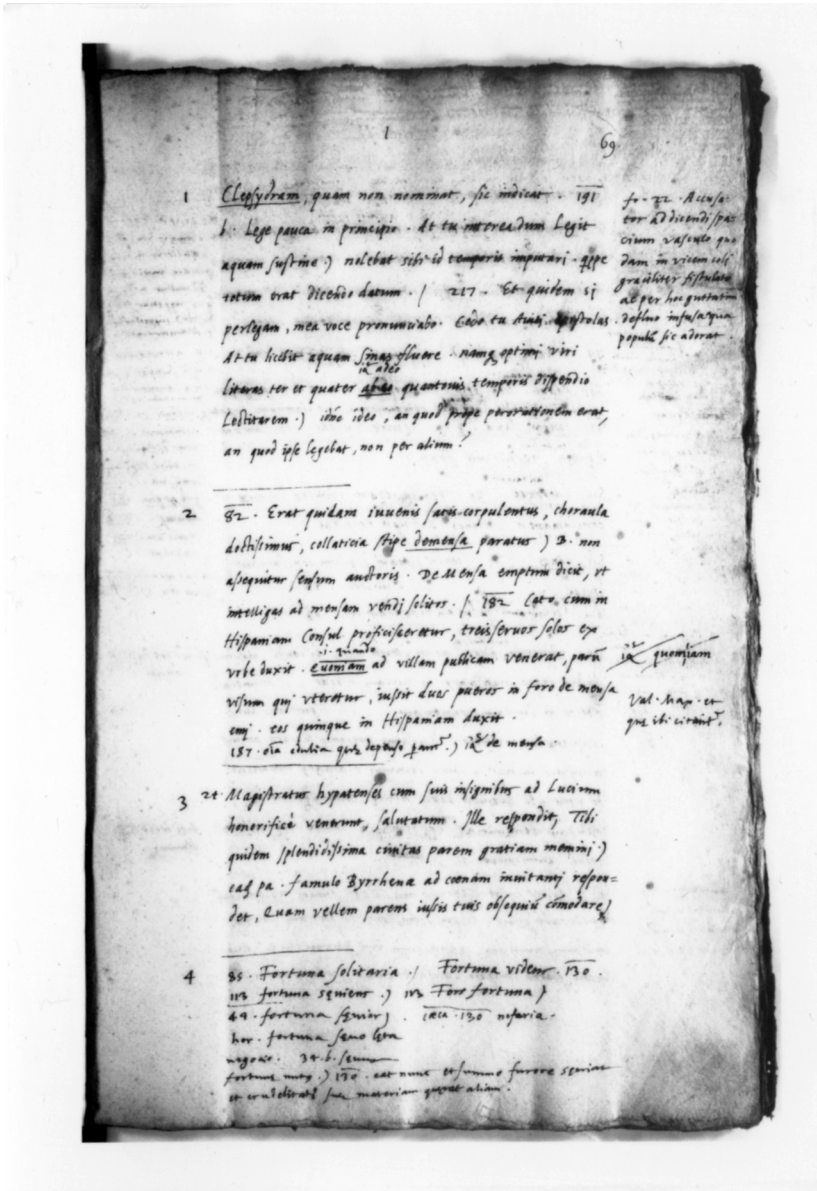 1
69
1 Clepsydram, quam non nominat, sic indicat. 191
b. Lege pauca in principio. At tu interea dum Legit
aquam sustine.) nolebat sibi id temporis imputari. quippe
totum erat dicendo datum. / 217. Et quidem si
perlegam, mea voce pronunciabo. Cedo tu Aviti epistolas.
At tu licebit aquam sinas fluere. namq optimi viri
adeo
literas ter et quater quantovis temporis dispendio
Lectitarem.) ideo, an quod prope perorationem erat,
an quod ipse legebat, non per alium?
fr. 22. Accusa-
tor ad dicendi spa-
cium vasculo quo
dam in vicem coli
graciliter fistulato
ac per hoc guttatim
defluo infusa aqua
populum sic adorat.
2 82. Erat quidam iuvenis satis corpulentus, choraula
doctissimus, collaticia stipe demensa paratus) B. non
assequitur sensum auctoris. De Mensa emptum dicit, ut
intelligas ad mensam vendi solitos. / 182 Cato cum in
Hispaniam Consul proficisceretur, treis servos solos ex
i. quando
urbe duxit. euoniam ad villam publicam venerat, parum
visum qui uteretur, iussit duos pueros in foro de mensa
emi. eos quinque in Hispaniam duxit.
187. de mensa.
quoniam
Val. Max. et
qui ibi citantur.
3 24. Magistratus hypatenses cum suis insignibus ad Lucium
honorifice venerunt, salutatum. Ille respondit, Tibi
quidem splendidissima civitas parem gratiam memini.)
ead pa. famulo Byrrhenae ad coenam invitanti respon=
det, Quam vellem parens iussis tuis obsequium commodare)
4 85. Fortuna solitaria. / Fortuna videns. 130.
113 fortuna sequiens.) 113 Fors fortuna)
49. fortuna sequior). caeca. 130 nefaria.
hor. fortuna saevo laeta
negocio. 34. b.
fortunae 130. eat nunc et summo furore saeviat
et crudelitati suae materiam quaerat aliam.